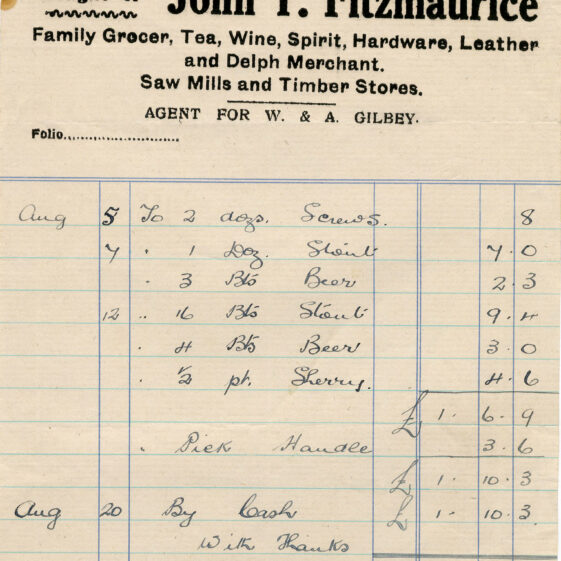 John T. Fitzmaurice
Family Grocer, Tea, Wine, Spirit, Hardware, Leather
and Delph Merchant.
Saw Mills and Timber Stores.
AGENT FOR W. & A. GILBEY.
Folio..........................
Aug 5 To 2 dozs. Screws. 8
7 " 1 Doz. Stout 7.0
" 3 Bts Beer 2.3
12 " 16 Bts Stout 9.4
" 4 Bts Beer 3.0
" ½ pt. Sherry. 4.6
£ 1. 6.9
" Pick Handle 3.6
£ 1. 10.3
Aug 20 By Cash £ 1. 10.3
With Thanks